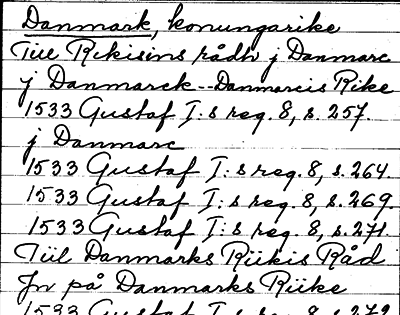 Danmark, konungarike
Till Rikisins rådh j Danmarc
j Danmarck--Danmarcis Rike
1533 Gustaf I:s reg. 8, s. 257.
j Danmarc
1533 Gustaf I:s reg. 8, s. 264.
1533 Gustaf I:s reg. 8, s. 269.
1533 Gustaf I:s reg. 8, s. 271
Tiil Danmarks Riikis Råd
Jn på Danmarks Riike
1533 Gustaf I:s reg. 8, s. 272